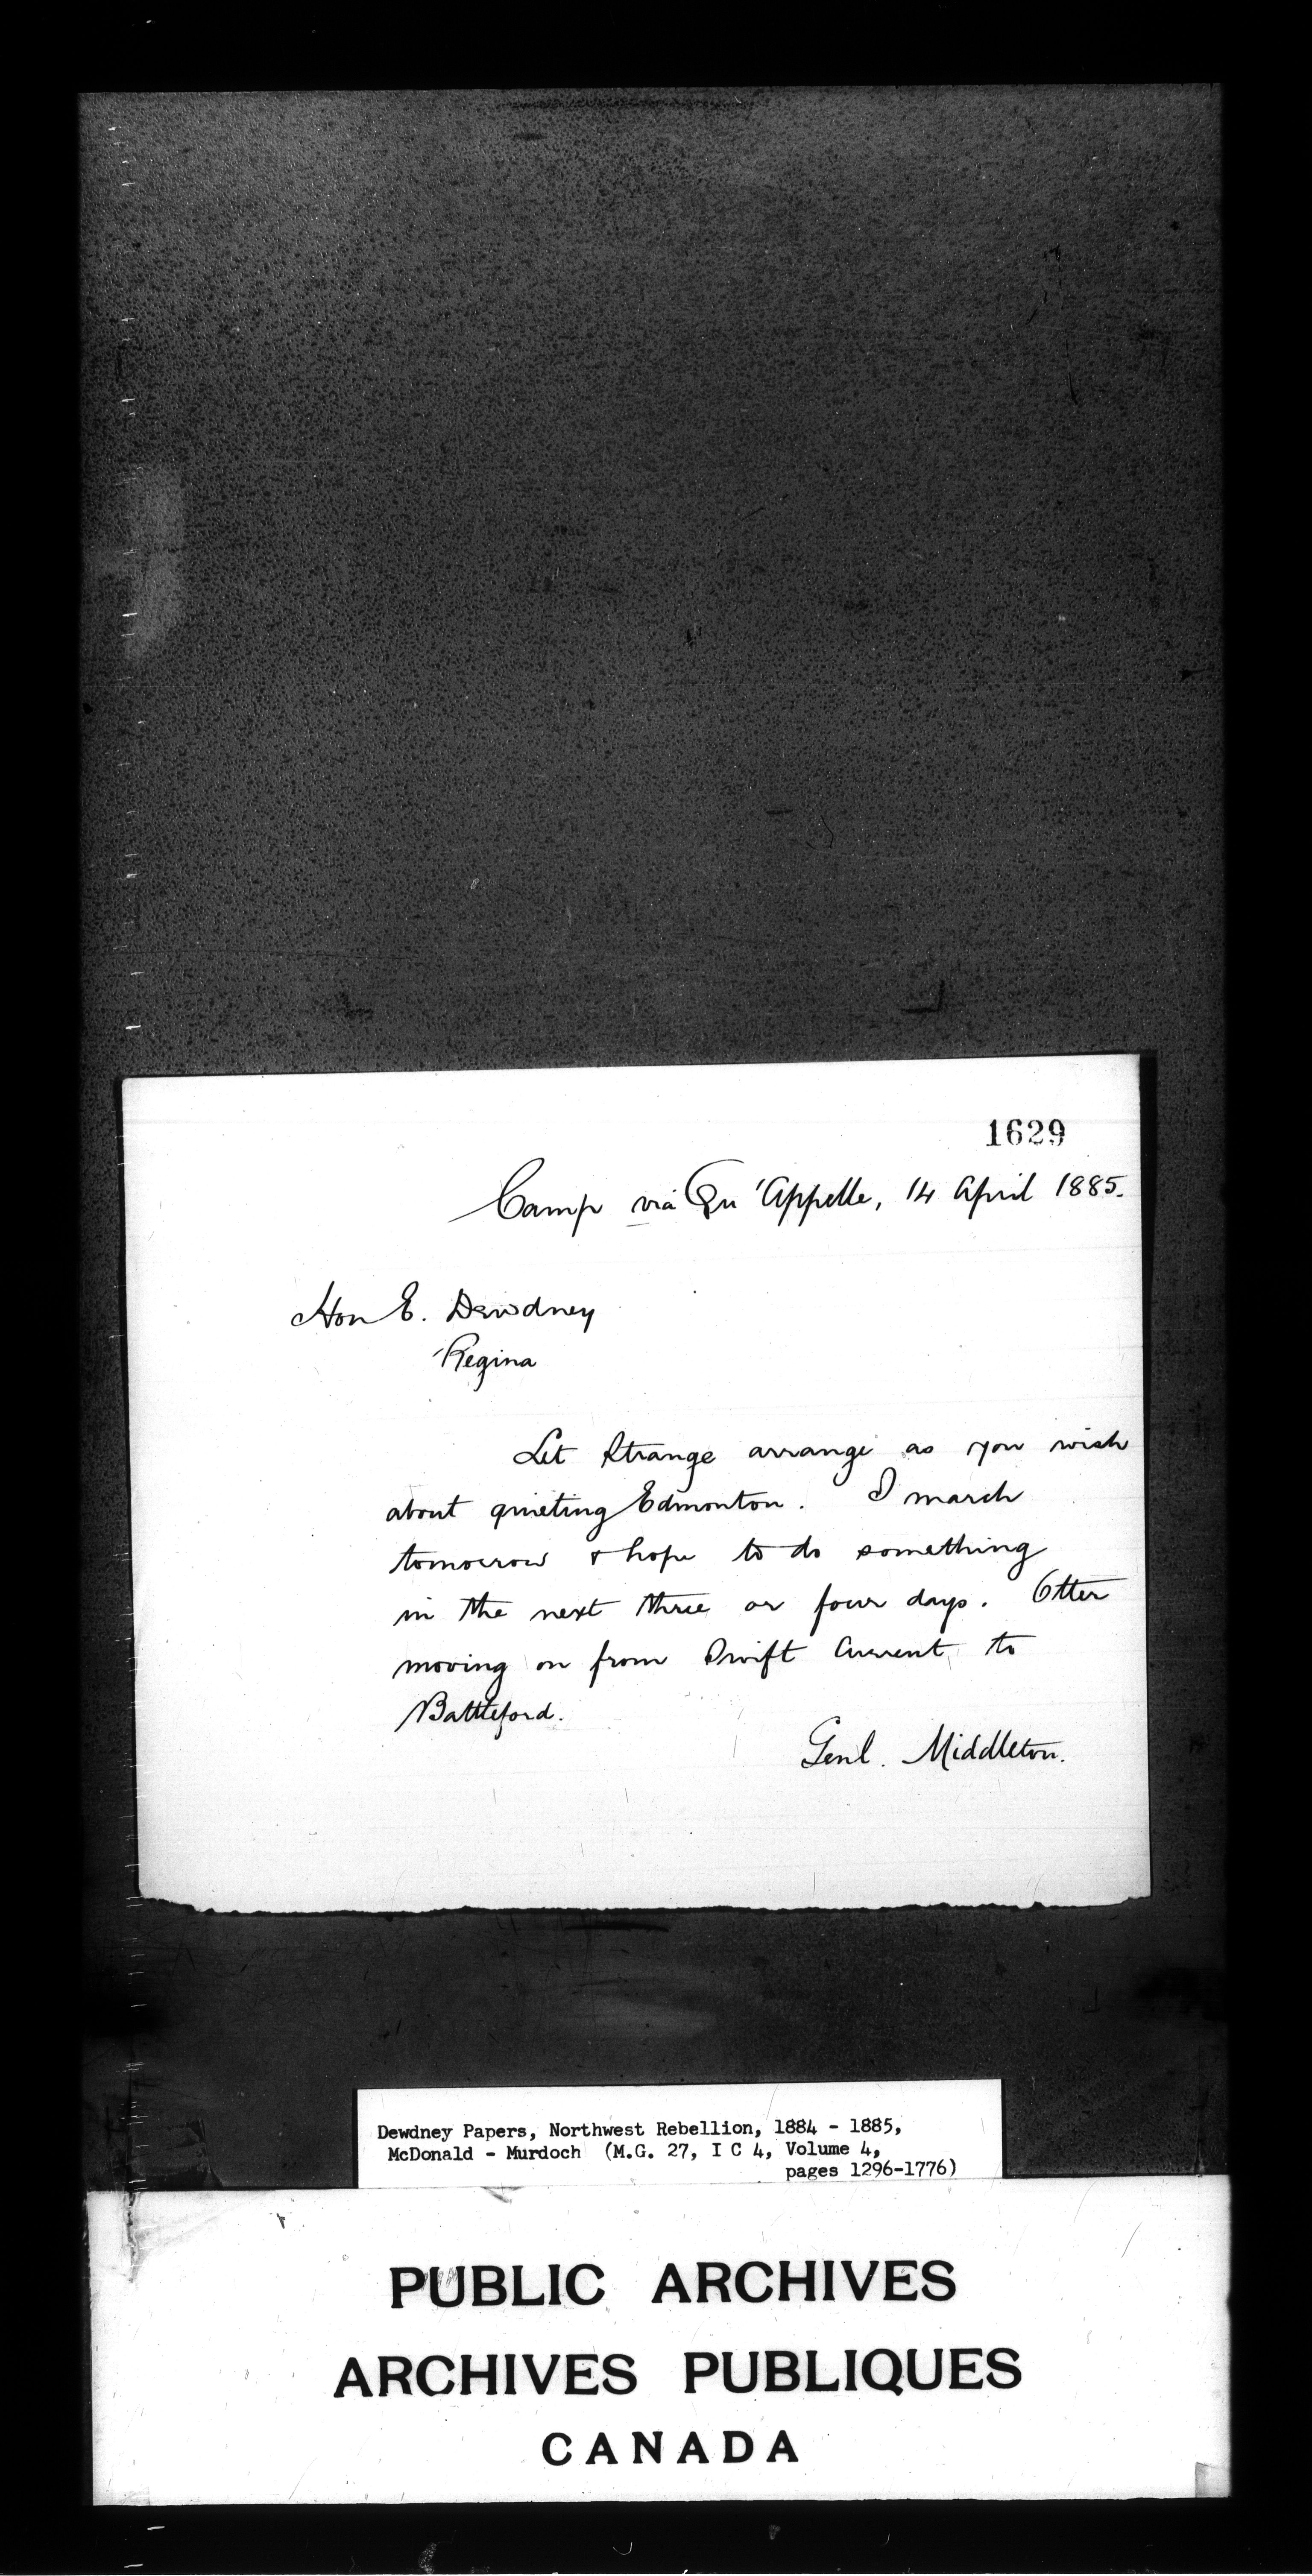 1629
Camp via Qu'Appelle, 14 April 1885.
Hon E. Dewdney
Regina
Let Strange arrange as you wish
about quieting Edmonton. I march
tomorrow & hope to do something
in the next three or four days. Otter
moving on from Swift Current to
Battleford.
Genl. Middleton.
Dewdney Papers, Northwest Rebellion, 1884 - 1885,
McDonald - Murdoch (M.G. 27, I C 4, Volume 4,
pages 1296-1776)
PUBLIC ARCHIVES
ARCHIVES PUBLIQUES
CANADA